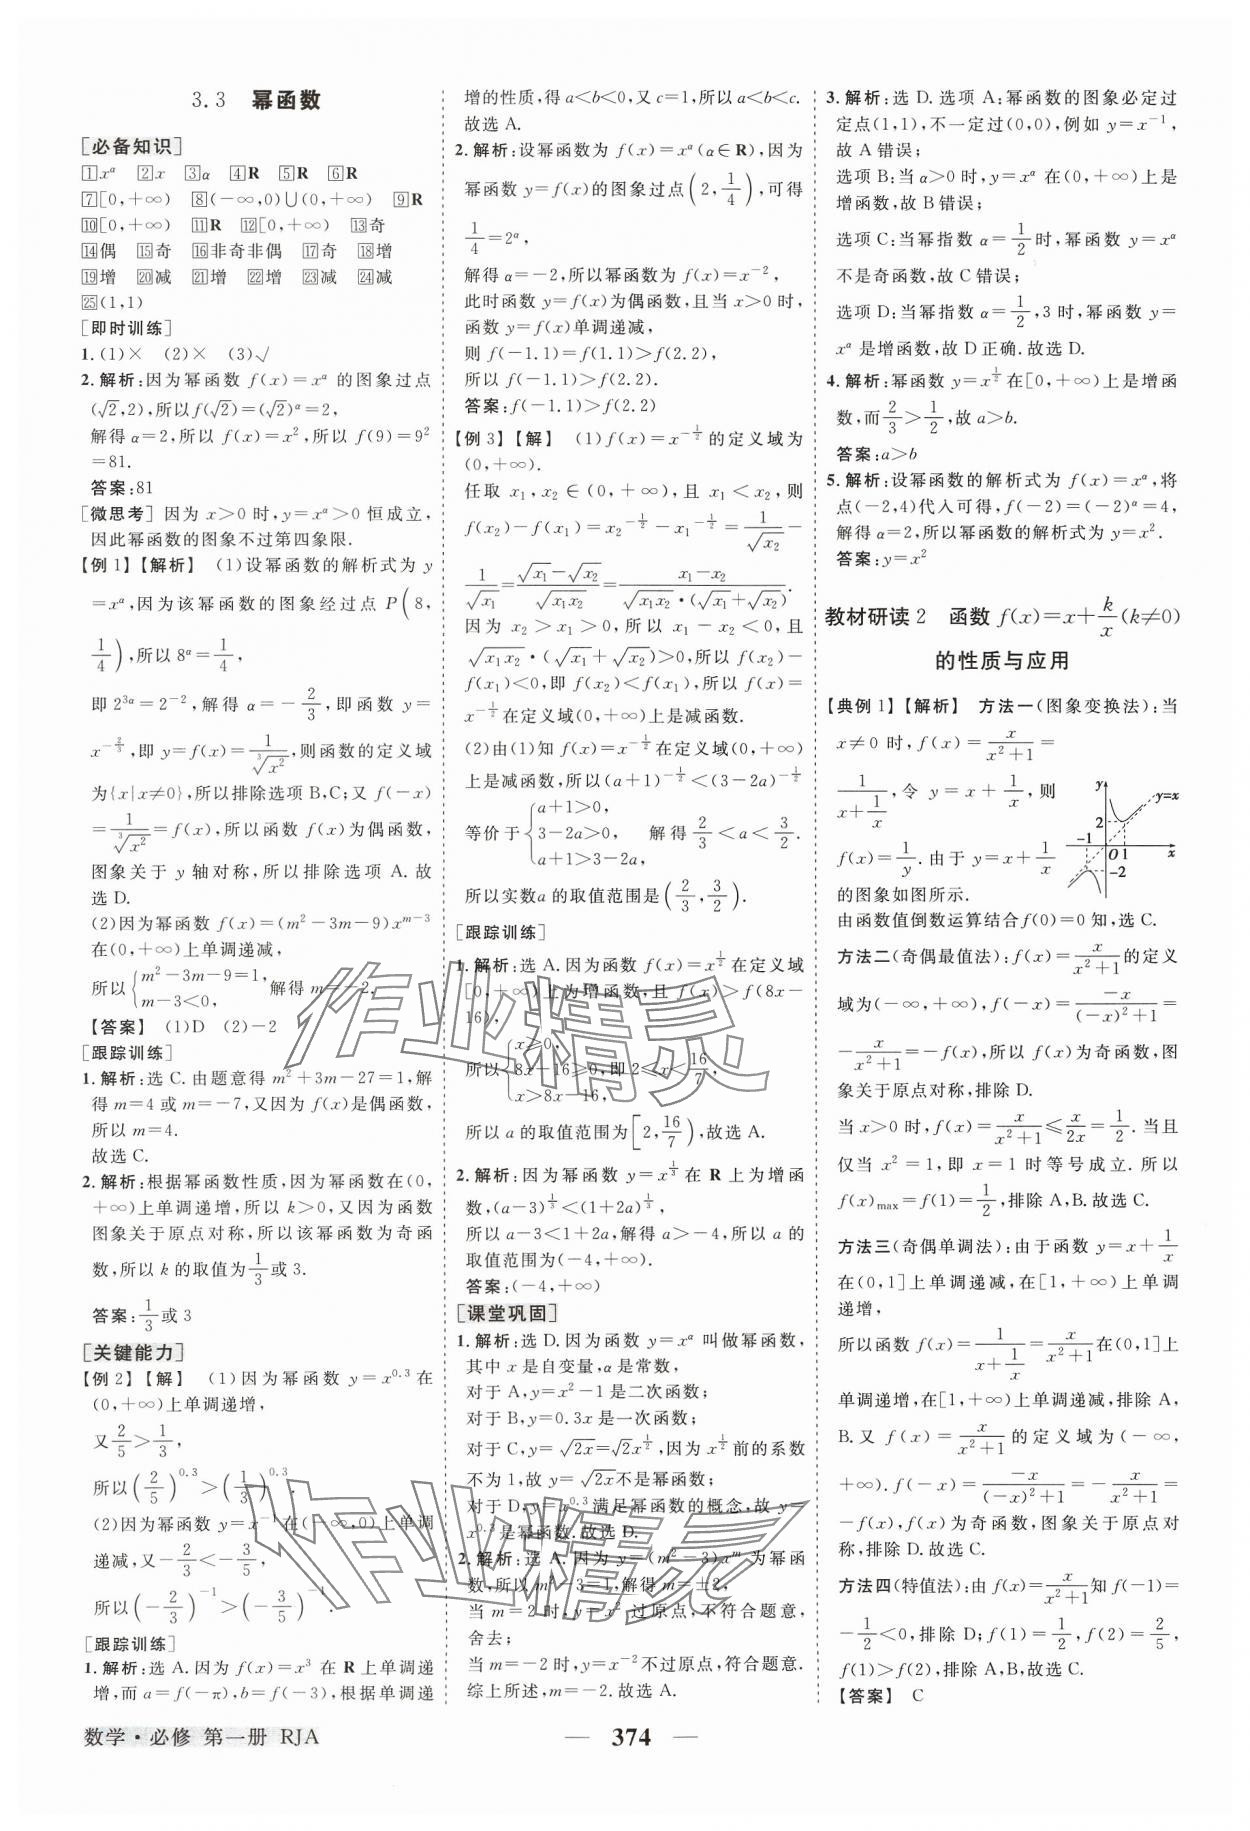 3.3 幂函数
[必备知识]
1 x^α 2 x 3 α 4 R 5 R 6 R
7 [0,+∞) 8 (-∞,0)∪(0,+∞) 9 R
10 [0,+∞) 11 R 12 [0,+∞) 13 奇
14 偶 15 奇 16 非奇非偶 17 奇 18 减
19 增 20 减 21 增 22 增 23 减 24 减
25 (1,1)
[即时训练]
1.(1)× (2)× (3)√
2.解析:因为幂函数 f(x)=x^α 的图象过点
(√2,2),所以f(√2)=(√2)^α=2,
解得 α=2,所以 f(x)=x^2,所以 f(9)=9^2
=81.
答案:81
[微思考] 因为 x>0 时,y=x^α>0 恒成立,
因此幂函数的图象不过第四象限.
[例 1][解析] (1)设幂函数的解析式为 y
=x^α,因为该幂函数的图象经过点 P(8,
1/4),所以 8^α=1/4,
即 2^{3α}=2^{-2},解得 α=-2/3,即函数 y=
x^{-2/3},即 y=f(x)=1/∛(x^2),则函数的定义域
为{x|x≠0},所以排除选项 B,C;又 f(-x)
=1/∛(x^2)=f(x),所以函数 f(x)为偶函数,
图象关于 y 轴对称,所以排除选项 A.故
选 D.
(2)因为幂函数 f(x)=(m^2-3m-9)x^{m-3}
在(0,+∞)上单调递减,
所以{m^2-3m-9=1, m-3<0, 解得 m=-2.
[答案] (1)D (2)-2
[跟踪训练]
1.解析:选 C.由题意得 m^2+3m-27=1,解
得 m=4 或 m=-7,又因为 f(x)是偶函数,
所以 m=4.
故选 C.
2.解析:根据幂函数性质,因为函数在(0,
+∞)上单调递增,所以 k>0,又因为函数
图象关于原点对称,所以该幂函数为奇函
数,所以 k 的取值为1/3或 3.
答案:1/3或 3
[关键能力]
[例 2][解] (1)因为幂函数 y=x^{0.3} 在
(0,+∞)上单调递增,
又2/5>1/3,
所以(2/5)^{0.3}>(1/3)^{0.3}.
(2)因为幂函数 y=x^{-1}在(-∞,0)上单调
递减,又-2/3<-3/5,
所以(-2/3)^{-1}>(-3/5)^{-1}.
[跟踪训练]
1.解析:选 A.因为 f(x)=x^3 在 R 上单调递
增,而 a=f(-π),b=f(-3),根据单调递
增的性质,得 a<b<0,又 c=1,所以 a<b<c.
故选 A.
2.解析:设幂函数为 f(x)=x^α(α∈R),因为
幂函数 y=f(x)的图象过点(2,1/4),可得
1/4=2^α,
解得 α=-2,所以幂函数为 f(x)=x^{-2},
此时函数 y=f(x)为偶函数,且当 x>0 时,
函数 y=f(x)单调递减,
则 f(-1.1)=f(1.1)>f(2.2),
所以 f(-1.1)>f(2.2).
答案:f(-1.1)>f(2.2)
[例 3][解] (1)f(x)=x^{-1/2} 的定义域为
(0,+∞).
任取 x_1,x_2∈(0,+∞),且 x_1<x_2,则
f(x_2)-f(x_1)=x_2^{-1/2}-x_1^{-1/2}=1/√x_2-
1/√x_1=(√x_1-√x_2)/√(x_1x_2)=(x_1-x_2)/(√(x_1x_2)·(√x_1+√x_2)).
因为 x_2>x_1>0,所以 x_1-x_2<0,且
√(x_1x_2)·(√x_1+√x_2)>0,所以 f(x_2)-
f(x_1)<0,即 f(x_2)<f(x_1),所以 f(x)=
x^{-1/2}在定义域(0,+∞)上是减函数.
(2)由(1)知 f(x)=x^{-1/2}在定义域(0,+∞)
上是减函数,所以(a+1)^{-1/2}<(3-2a)^{-1/2}
等价于{a+1>0, 3-2a>0, a+1>3-2a, 解得2/3<a<3/2.
所以实数a 的取值范围是(2/3,3/2).
[跟踪训练]
1.解析:选 A.因为函数 f(x)=x^{1/2}在定义域
[0,+∞)上为增函数,且 f(x)>f(8x-
16),
所以{x≥0, 8x-16≥0, x>8x-16, 即 2≤x<16/7,
所以 a 的取值范围为[2,16/7),故选 A.
2.解析:因为幂函数 y=x^{1/3} 在 R 上为增函
数,(a-3)^{1/3}<(1+2a)^{1/3},
所以 a-3<1+2a,解得 a>-4,所以 a 的
取值范围为(-4,+∞).
答案:(-4,+∞)
[课堂巩固]
1.解析:选 D.因为函数 y=x^α 叫做幂函数,
其中 x 是自变量,α 是常数,
对于 A,y=x^2-1 是二次函数;
对于 B,y=0.3x 是一次函数;
对于 C,y=√2x=√2x^{1/2},因为 x^{1/2} 前的系数
不为 1,故 y=√2x不是幂函数;
对于 D,y=x^{0.3}满足幂函数的概念,故 y=
x^{0.3}是幂函数.故选 D.
2.解析:选 A.因为 y=(m^2-3)x^m 为幂函
数,所以 m^2-3=1,解得 m=±2,
当 m=2 时,y=x^2 过原点,不符合题意,
舍去;
当 m=-2 时,y=x^{-2}不过原点,符合题意.
综上所述,m=-2.故选 A.
3.解析:选 D.选项 A:幂函数的图象必定过
定点(1,1),不一定过(0,0),例如 y=x^{-1},
故 A 错误;
选项 B:当 α>0 时,y=x^α 在(0,+∞)上是
增函数,故 B 错误;
选项 C:当幂指数 α=1/2时,幂函数 y=x^α
不是奇函数,故 C 错误;
选项 D:当幂指数 α=1/2,3 时,幂函数 y=
x^α 是增函数,故 D 正确.故选 D.
4.解析:幂函数 y=x^{1/2}在[0,+∞)上是增函
数,而2/3>1/2,故 a>b.
答案:a>b
5.解析:设幂函数的解析式为 f(x)=x^α,将
点(-2,4)代入可得,f(-2)=(-2)^α=4,
解得 α=2,所以幂函数的解析式为 y=x^2.
答案:y=x^2
教材研读 2 函数 f(x)=x+k/x(k≠0)
的性质与应用
[典例 1][解析] 方法一(图象变换法):当
x≠0 时,f(x)=x/(x^2+1)=
1/(x+1/x),令 y=x+1/x,则
f(x)=1/y.由于 y=x+1/x
的图象如图所示.
y
y=x
2
-1
O
1
x
-2
由函数值倒数运算结合f(0)=0 知,选 C.
方法二(奇偶最值法):f(x)=x/(x^2+1)的定义
域为(-∞,+∞),f(-x)=-x/((-x)^2+1)=
-x/(x^2+1)=-f(x),所以 f(x)为奇函数,图
象关于原点对称,排除 D.
当 x>0 时,f(x)=x/(x^2+1)≤x/2x=1/2.当且
仅当 x^2=1,即 x=1 时等号成立.所以
f(x)_max=f(1)=1/2,排除 A,B.故选 C.
方法三(奇偶单调法):由于函数 y=x+1/x
在(0,1]上单调递减,在[1,+∞)上单调
递增,
所以函数 f(x)=1/(x+1/x)=x/(x^2+1)在(0,1]上
单调递增,在[1,+∞)上单调递减,排除 A,
B.又 f(x)=x/(x^2+1)的定义域为(-∞,
+∞).f(-x)=-x/((-x)^2+1)=-x/(x^2+1)=
-f(x),f(x)为奇函数,图象关于原点对
称,排除 D.故选 C.
方法四(特值法):由 f(x)=x/(x^2+1)知 f(-1)=
-1/2<0,排除 D;f(1)=1/2,f(2)=2/5,
f(1)>f(2),排除 A,B.故选 C.
[答案] C
作业精灵
作业精灵
数学·必修 第一册 RJA
— 374 —